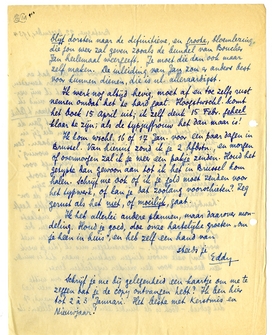 Blijf dorsten naar de definitieve, en groote, bloemlezing,
die jou weer zal geven zooals de bundel van Boucher
Jan heelemaal weergeeft. Je moet die dan ook maar
zelf maken. De inleiding van Jany zou er anders best
voor kunnen dienen, die is nl. allerwaardigst.
Ik werk nog altijd hevig, moet af en toe zelfs rust
nemen omdat het te hard gaat. Hoogstwschl. komt
het boek 15 April uit; ik zelf denk 15 Febr. geheel
klaar te zijn; als de typejuffrouw het dan maar is
Ik kom wschl. 16 of 17 Jan. voor een paar dagen in
Brussel. Van hieruit zond ik je 2 hfdstn, en morgen
of overmorgen zal ik je weer een pakje zenden. Houd het
getypte kan gewoon aan tot ik het in Brussel kom
halen. Schrijf me ook of ik je geld moet zenden voor
het typwerk, of kan je dat zoolang voorschieten? Zeg
gerust als het niet, of moeilijk, gaat.
Ik heb allerlei andere plannen, maar daarover mon-
deling. Houd je goed, doe onze hartelijke groeten
je heen in huis, en heb zelf een hand van
steeds je
Eddy
Schrijf je me bij gelegenheid een kaartje om me te
zeggen dat je de copy ontvangen hebt? Ik ben hier
tot 2 à 3 Januari. Het beste met Kerstmis en
Nieuwjaar!